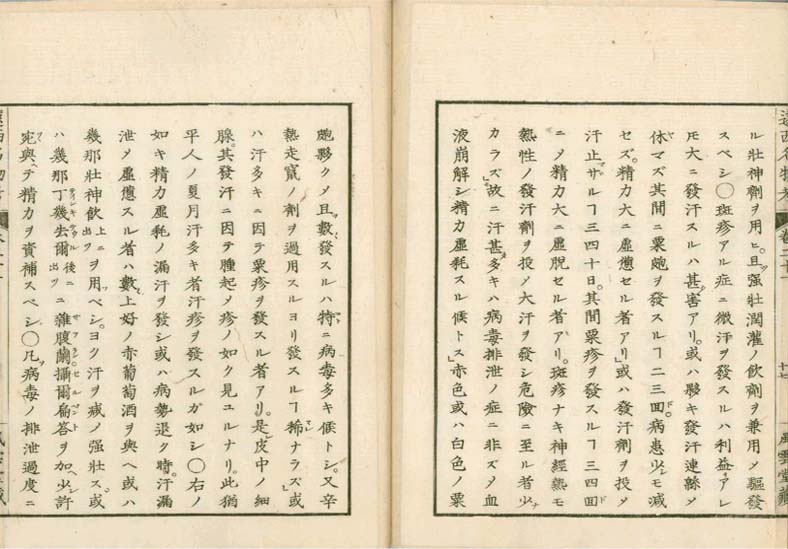 ル壮神劑ヲ用ヒ。且強壮潤灌ノ飲劑ヲ兼用〆驅發
スベシ〇斑疹アル症ニ微汗ヲ發スルハ利益アレ
𪜈大ニ發汗スルハ甚害アリ。或ハ夥キ發汗連綿〆
休マズ其間ニ粟皰ヲ發スルヿ二三回。病患少シモ減
セズ。精力大ニ虚憊セル者アリ」或ハ發汗劑ヲ投〆
汗止マザルヿ三四十日。其間粟疹ヲ發スルヿ三四回
ニ〆精力大ニ虚脱セル者アリ。斑疹ナキ神經熱モ
熱性ノ發汗劑ヲ投〆大汗ヲ發シ危險ニ至ル者少ナ
カラズ。故ニ汗甚多キハ病毒排泄ノ症ニ非ズ〆血
液崩解シ精力虚耗スル候トス」赤色或ハ白色ノ粟
皰夥クメ且數發スルハ特ニ病毒多キ候トシ。又辛
熱走竄ノ劑ヲ過用スルヨリ發スルヿ稀ナラズ」或
ハ汗多キニ因テ粟疹ヲ發スル者アリ。是皮中ノ細
腺。其發汗ニ因テ腫起〆疹ノ如ク見ユルナリ。此猶
平人ノ夏月汗多キ者汗疹ヲ發スルガ如シ〇右ノ
如キ精力虚耗ノ漏汗ヲ發シ或ハ病勢退ク時。汗漏
泄〆虚憊スル者ハ數上好ノ赤葡萄酒ヲ與ヘ或ハ
幾那壮神飲上ニ出ツヲ用ベシ。ヨク汗ヲ減〆強壮ス。或
ハ幾那丁幾去爾後ニ出ツニ雜腹蘭攝爾扁答ヲ加ヘ少許
宛與ヘテ精力ヲ資補スベシ〇凡病毒ノ排泄過度ニ